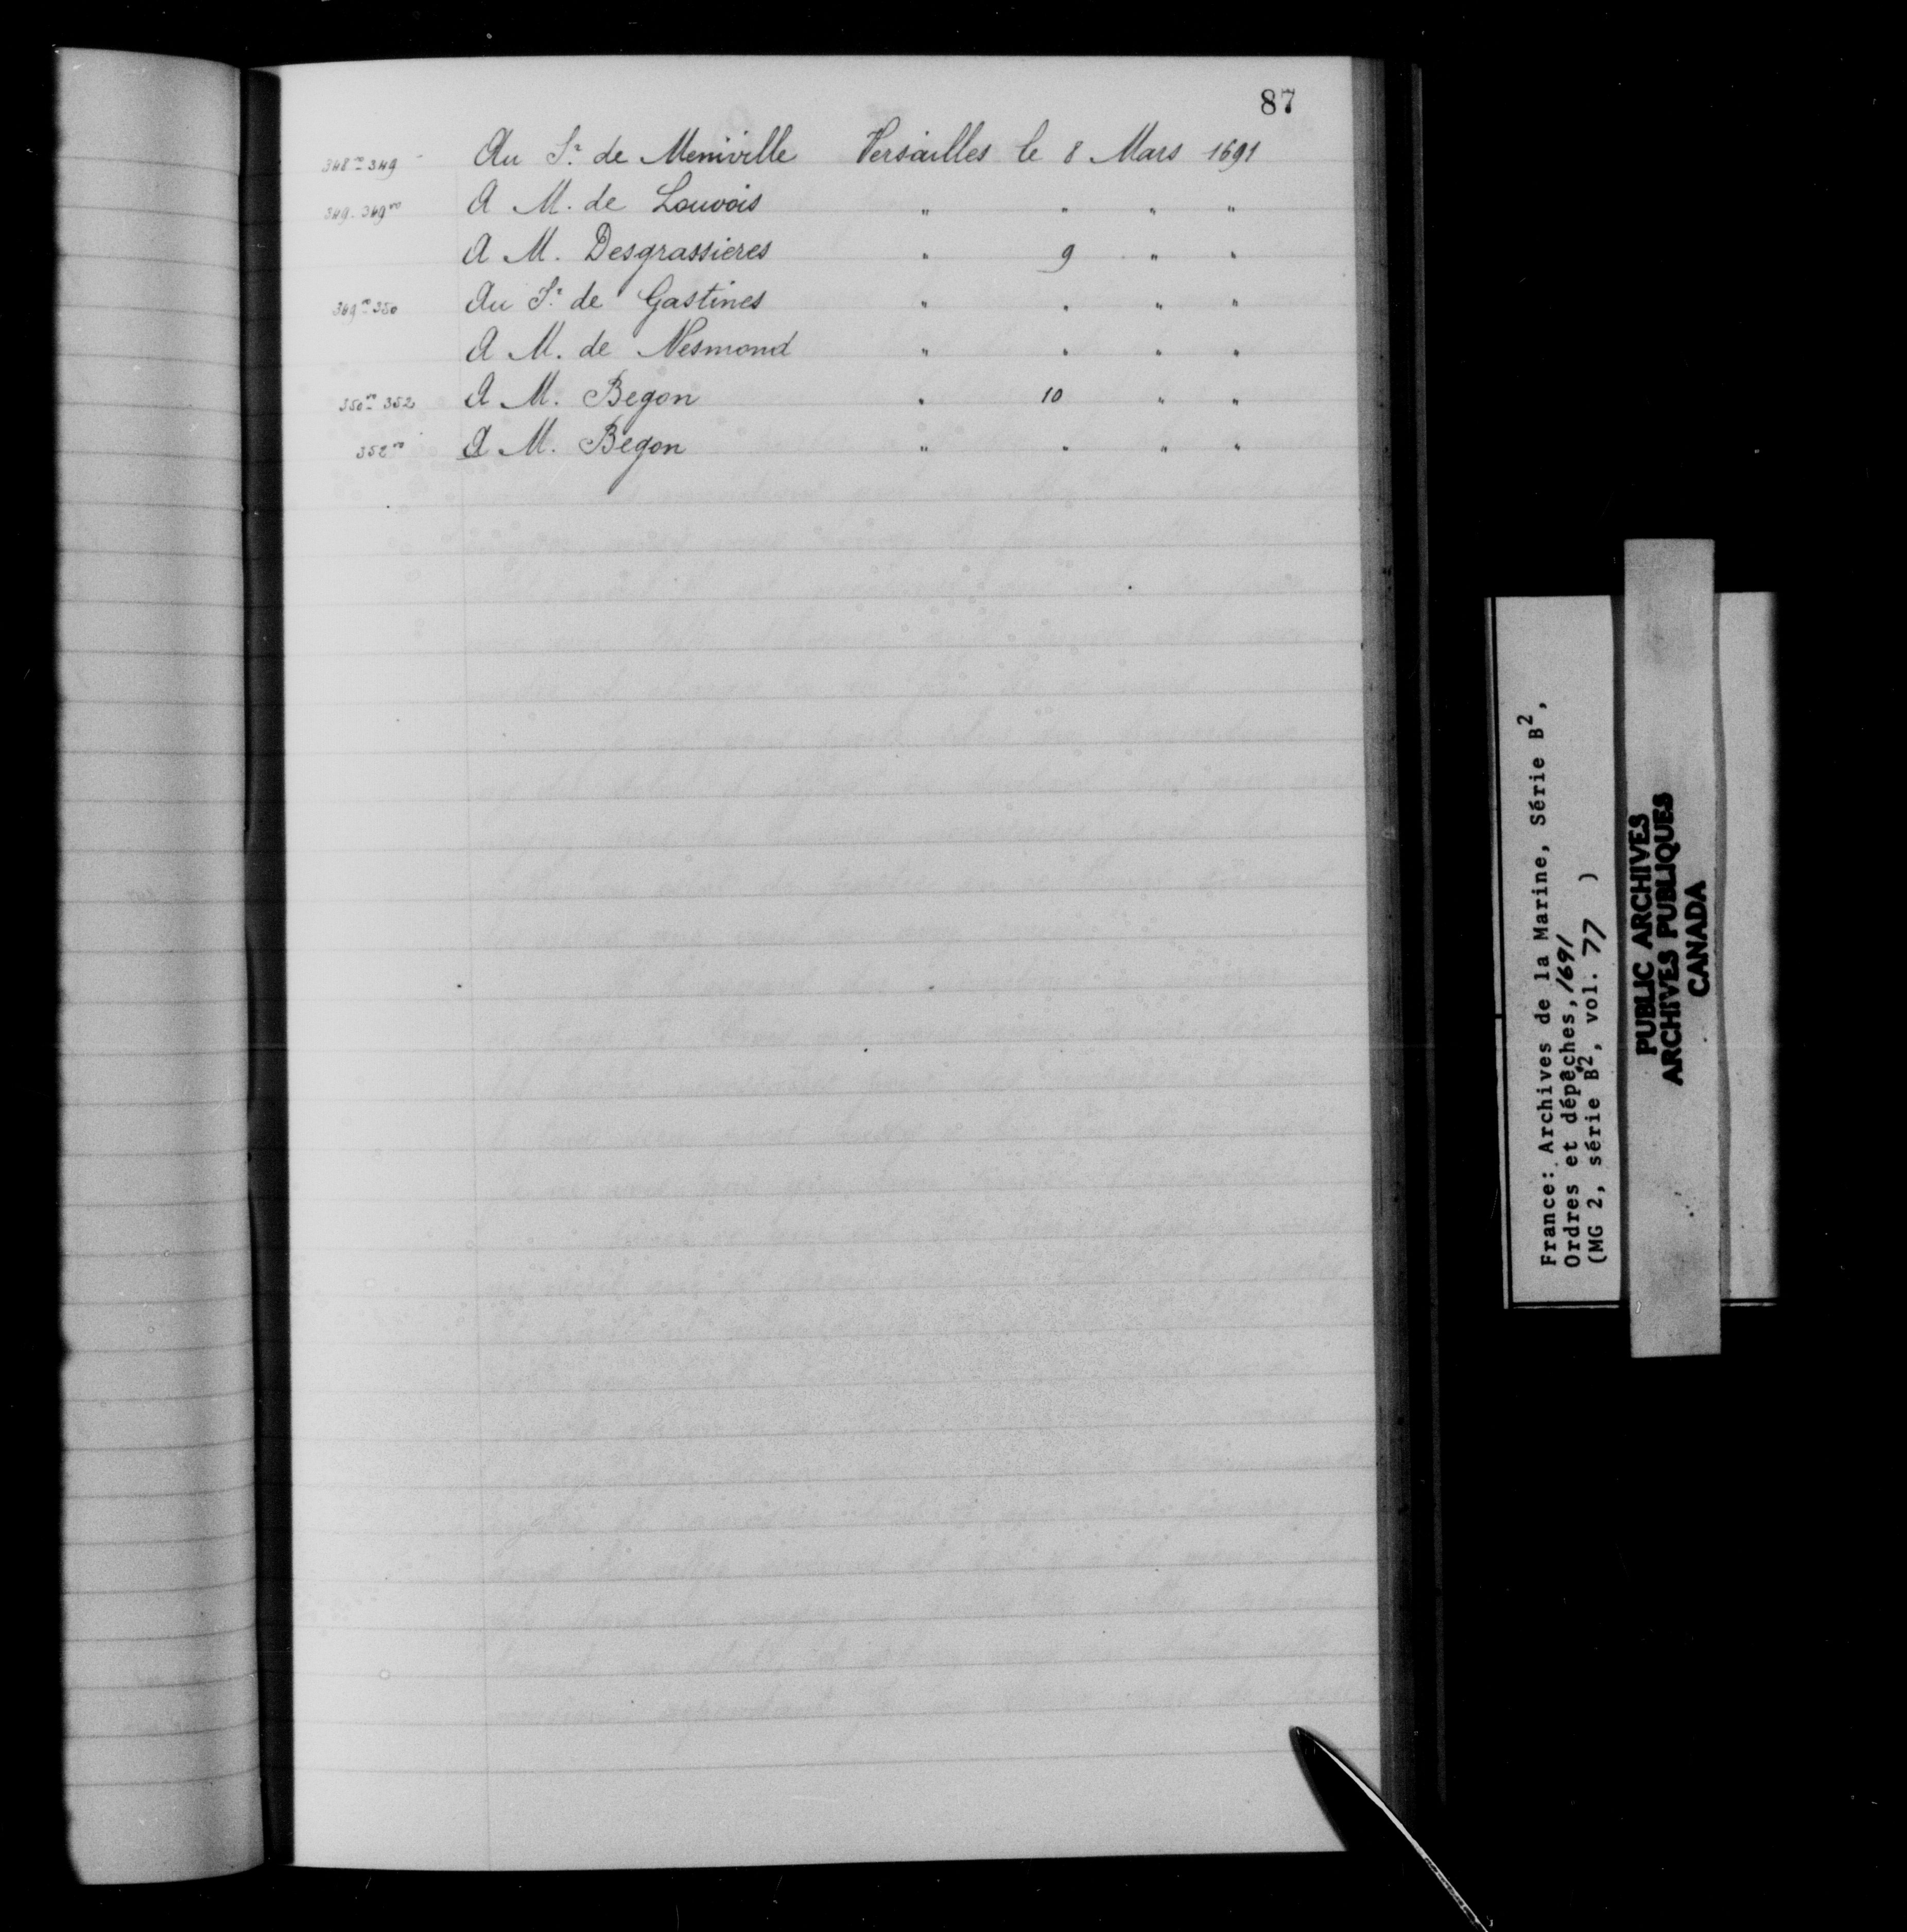 87
348vo-349 Au Sr. de Meniville Versailles le 8 Mars 1691
349-349vo A M. de Louvois " " " "
A M. Desgrassieres " 9 " "
349vo-350 Au Sr. de Gastines " " " "
A M. de Nesmond " " " "
350vo-352 A M. Begon " 10 " "
352vo A M. Begon " " " "
France: Archives de la Marine, Série B2,
Ordres et dépêches, 1691
(MG 2, série B2, vol. 77 )
PUBLIC ARCHIVES
ARCHIVES PUBLIQUES
CANADA